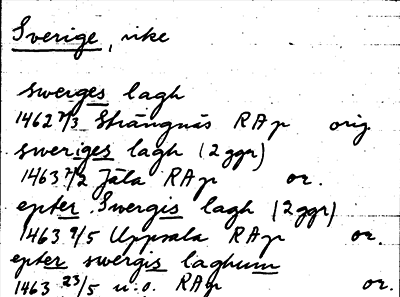 Sverige, rike
swerges lagh
1462 7/3 Strängnäs RAp orig
sweriges lagh (2 ggr)
1463 7/2 Jäla RAp or.
epter Swergis lagh (2 ggr)
1463 2/5 Uppsala RAp or.
epter swergis laghum
1463 23/5 u.o. RAp or.